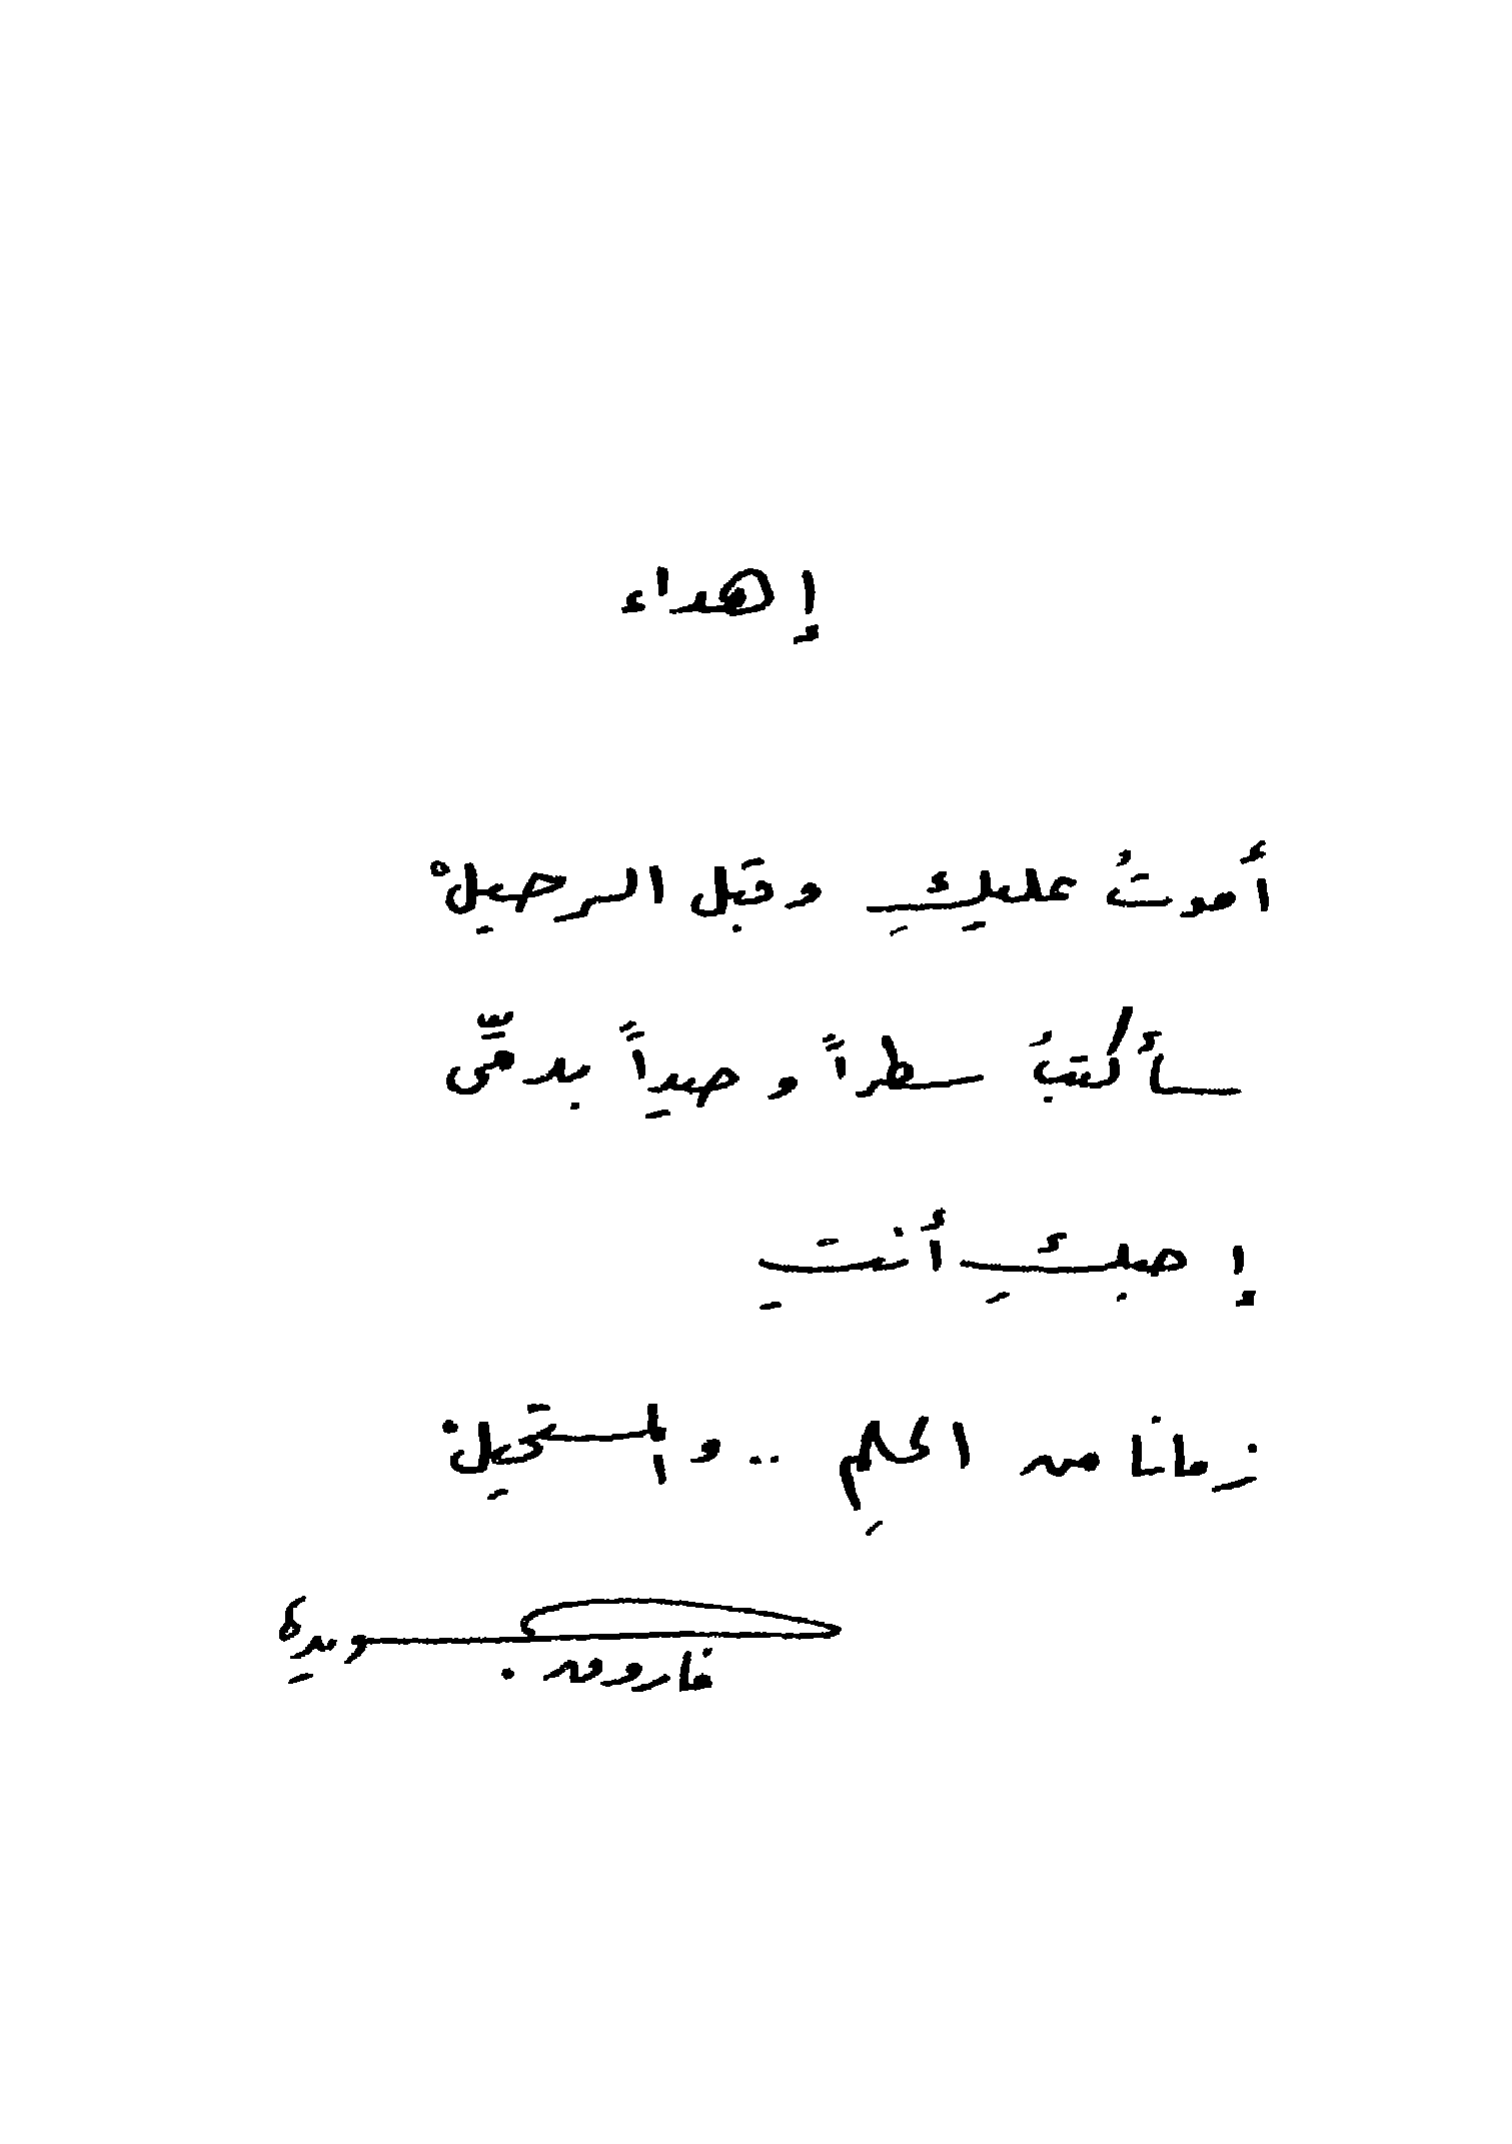 إهداء
أموتُ عليكِ وقبل الرحيلْ
سأكتبُ سطراً وحيداً بدمِّى
إحبكِ أنتِ
زمانا من الحلمِ .. والمستحيلْ
فاروق جويدة